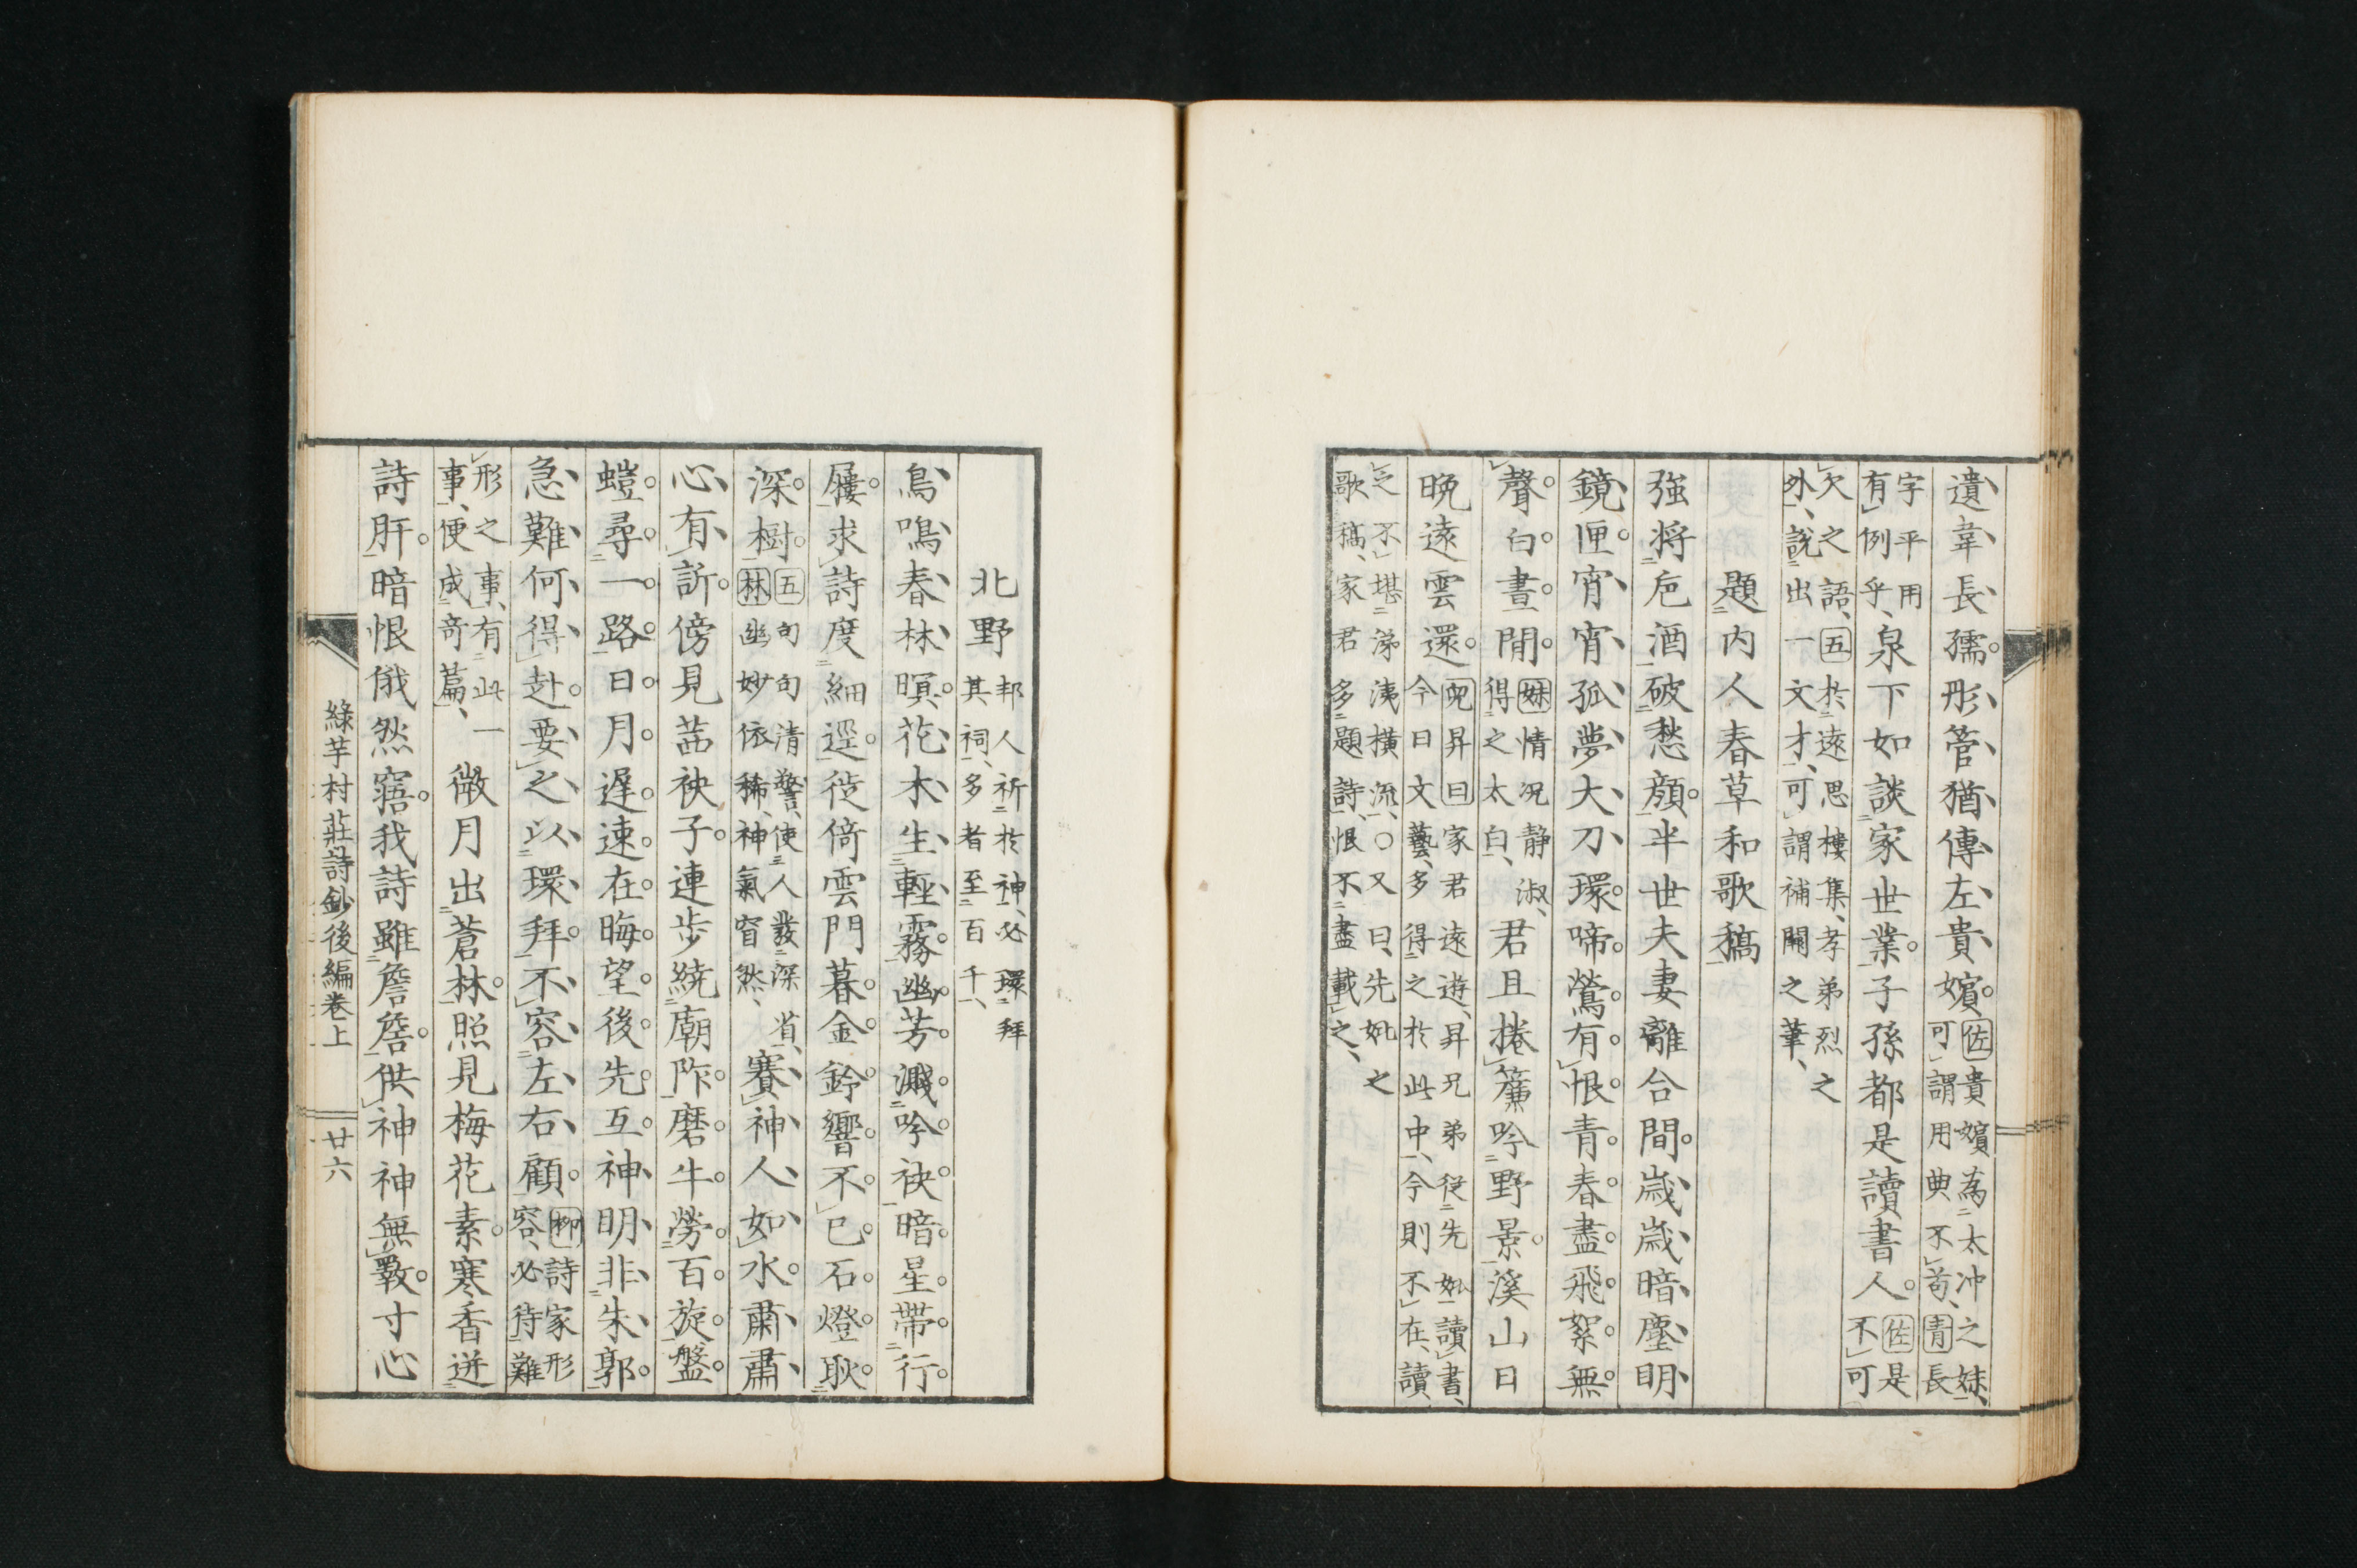 遺韋長孺彤管猶傳左貴嬪佐貴嬪為太冲之妹
可謂用典不苟青長
字平用
有例乎泉下如談家世業子孫都是讀書人佐是
不可
欠之語五於遠思樓集孝弟烈之
外說出一文才可謂補闕之筆
題内人春草和歌稿
強将卮酒破愁顔半世夫妻離合間歳歳暗塵明
鏡匣宵宵孤夢大刀環啼鶯有恨青春盡飛絮無
聲白晝閒妹情况静淑
得之太白君且捲簾吟野景溪山日
晩遠雲還兕昇曰家君遠遊昇兄弟從先妣讀書
今日文藝多得之於此中今則不在讀
之不堪涕洟横流○又曰先妣之
歌稿家君多題詩恨不盡載之
北野邦人祈於神必環拜
其祠多者至百千
鳥鳴春林暝花木生輕霧幽芳濺吟袂暗星帶行
屨求詩度細逕徙倚雲門暮金鈴響不已石燈耿
深樹五句句清警使人發深省
林幽妙依稀神氣窅然賽神人如水肅肅
心有訴傍見茜袂子連歩繞廟阼磨牛勞百旋盤
螘尋一路日月遅速在晦望後先互神明非朱郭
急難何得赴要之以環拜不容左右顧柳詩家形
容必待難
形之事有此一
事便成奇篇微月出蒼林照見梅花素寒香迸
詩肝暗恨俄然寤我詩雖詹詹供神神無斁寸心
綠芋村莊詩鈔後編卷上
廿六